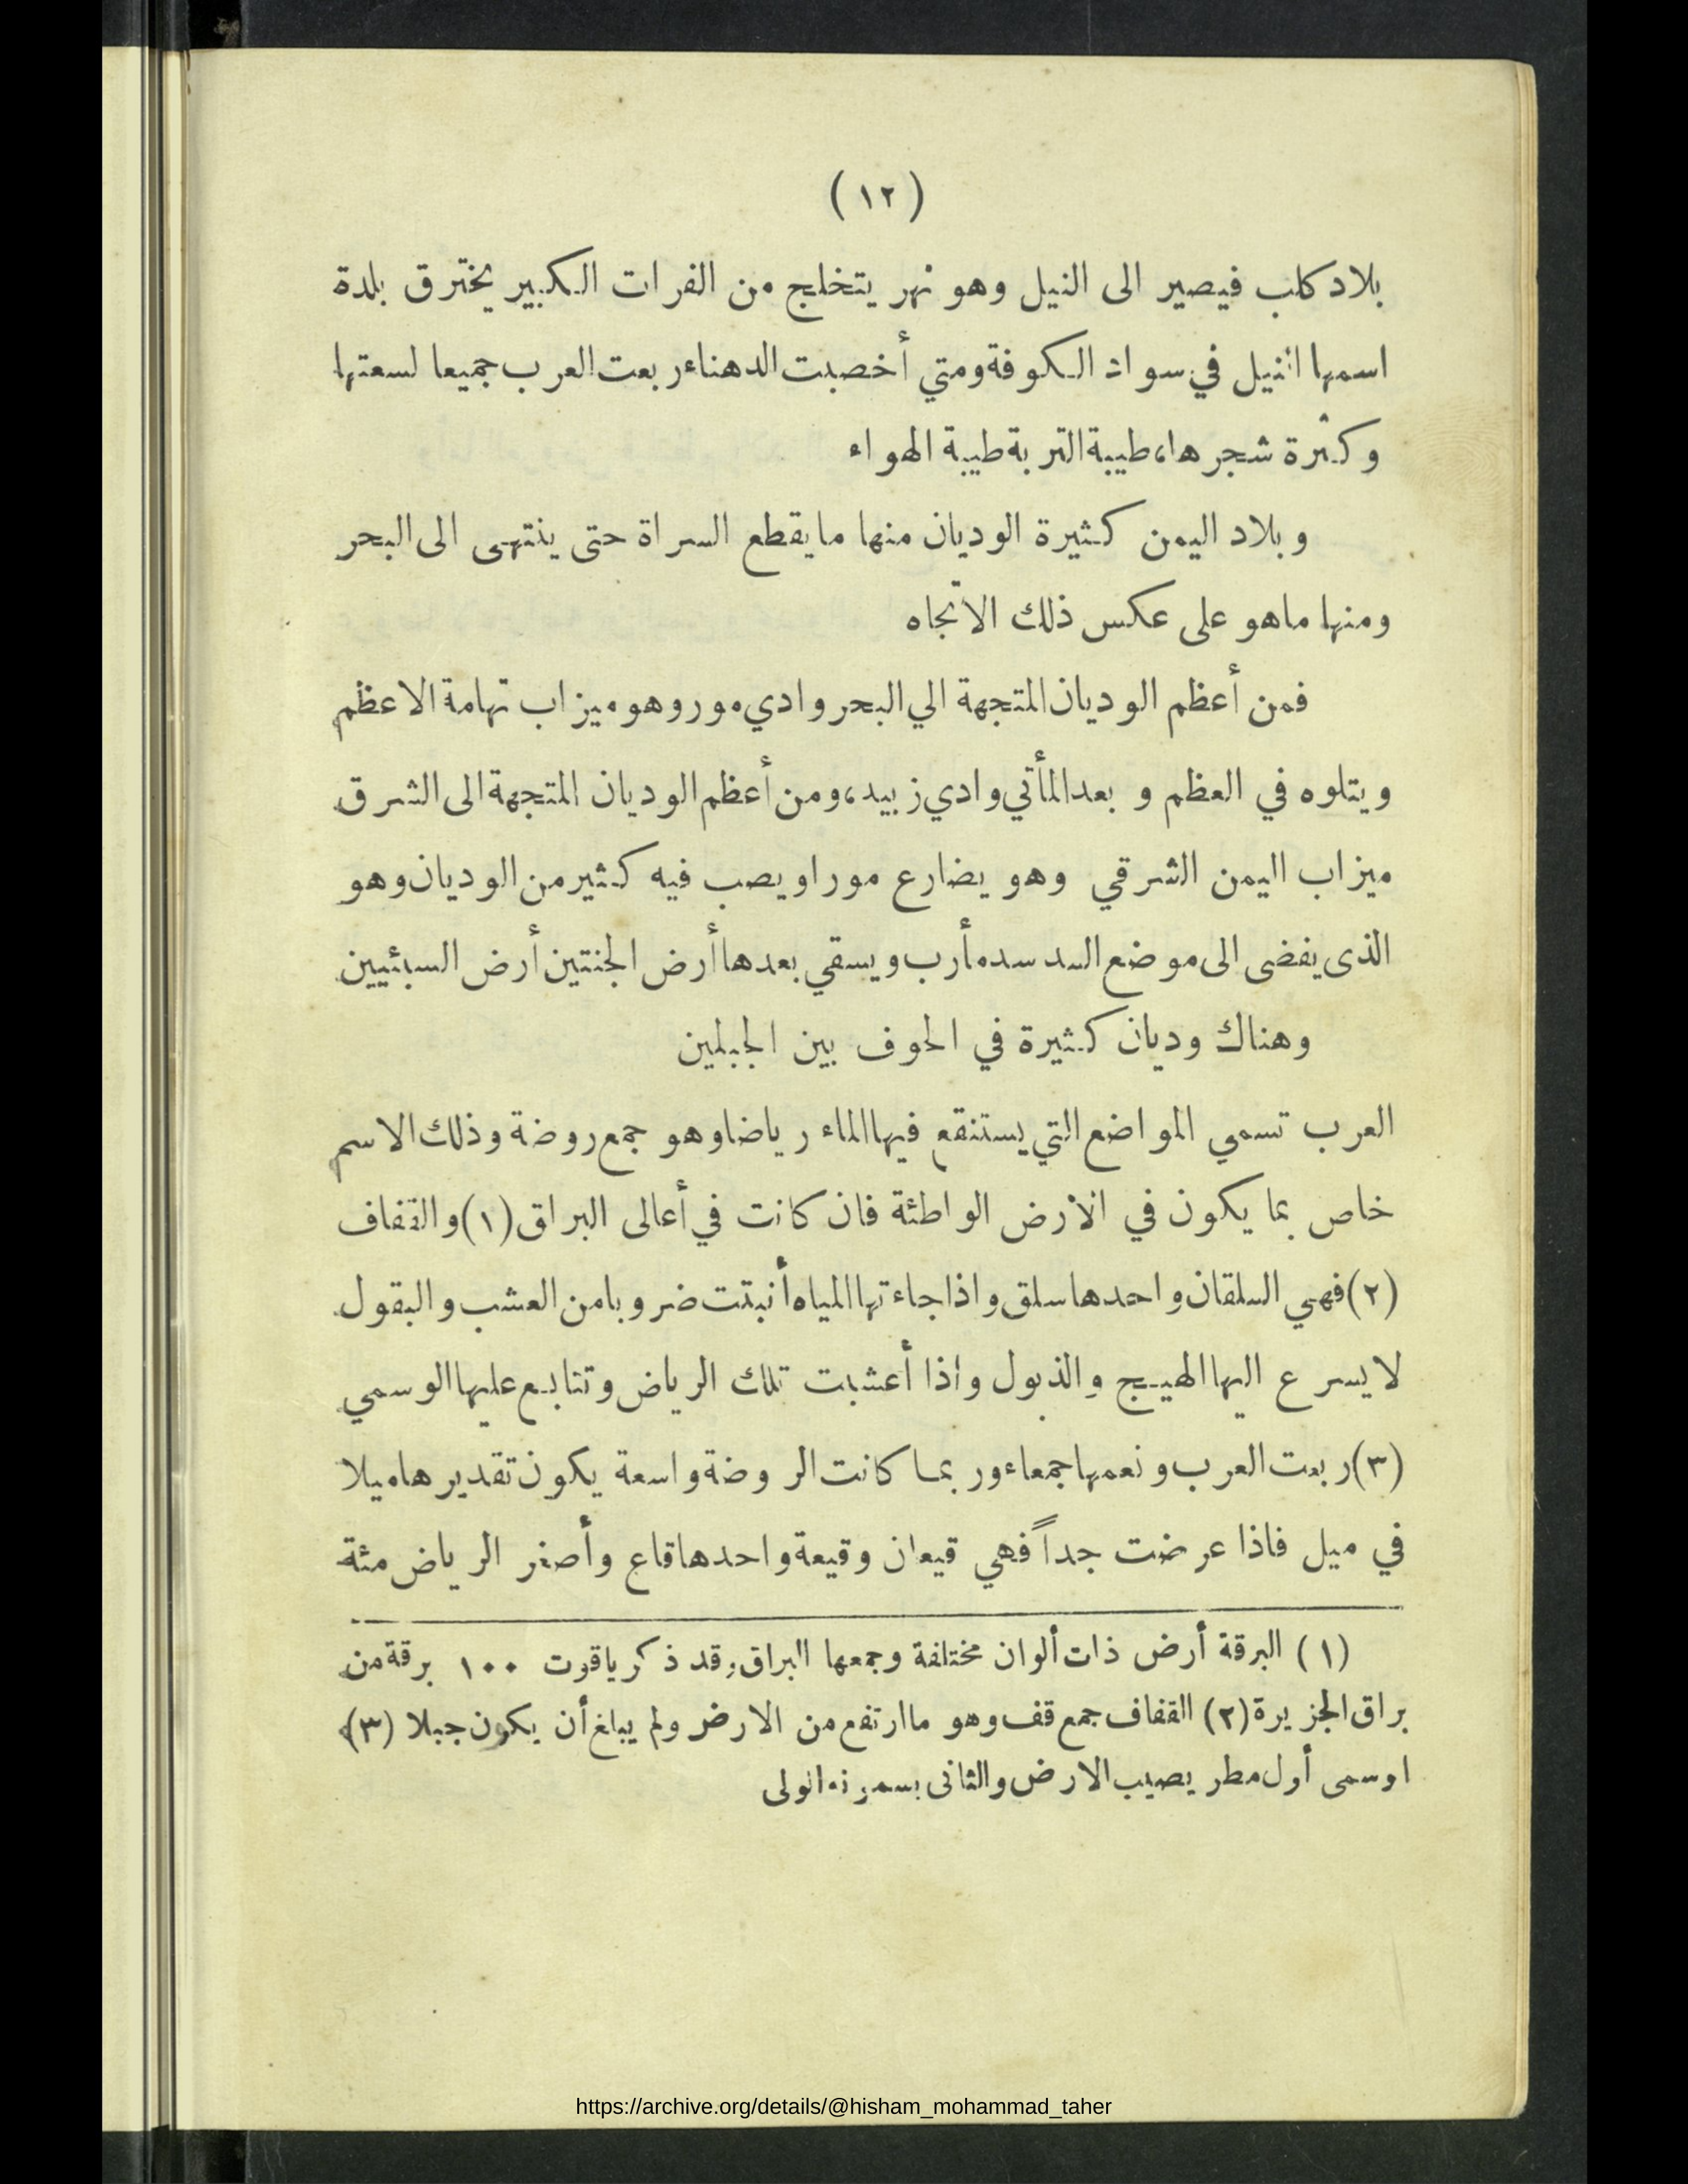 (١٢)
بلاد كلب فيصير الى النيل وهو نهر يتخلج من الفرات الكبير يخترق بلدة
اسمها النيل في سواد الكوفة ومتي أخصبت الدهناء ربعت العرب جميعا لسعتها
وكثرة شجرها، طيبة التربة طيبة الهواء
وبلاد اليمن كثيرة الوديان منها ما يقطع السراة حتى ينتهى الى البحر
ومنها ماهو على عكس ذلك الاتجاه
فمن أعظم الوديان المتجهة الي البحر وادي مور وهو ميزاب تهامة الاعظم
ويتلوه في العظم و بعد المأتي وادي زبيد، ومن أعظم الوديان المتجهة الى الشرق
ميزاب اليمن الشرقي وهو يضارع مورا ويصب فيه كثير من الوديان وهو
الذى يفضى الى موضع السد سد مأرب ويسقي بعدها أرض الجنتين أرض السبئيين
وهناك وديان كثيرة في الحوف بين الجبلين
العرب تسمي المواضع التي يستنقع فيها الماء رياضا وهو جمع روضة وذلك الاسم
خاص بما يكون في الارض الواطئة فان كانت في أعالى البراق (١) والقفاف
(٢) فهي السلقان واحدها سلق واذا جاءتها المياه أنبتت ضروبا من العشب والبقول
لا يسرع اليها الهيج والذبول واذا أعشبت تلك الرياض وتتابع عليها الوسمي
(٣) ربعت العرب ونعمها جمعاء وربما كانت الروضة واسعة يكون تقديرها ميلا
في ميل فاذا عرضت جداً فهي قيعان وقيعة واحدها قاع وأصغر الرياض مئة
(١) البرقة أرض ذات ألوان مختلفة وجمعها البراق وقد ذكر ياقوت ١٠٠ برقة من
براق الجزيرة (٢) القفاف جمع قف وهو ما ارتفع من الارض ولم يبلغ أن يكون جبلا (٣)
الوسمى أول مطر يصيب الارض والثانى يسمونه الولى
https://archive.org/details/@hisham_mohammad_taher